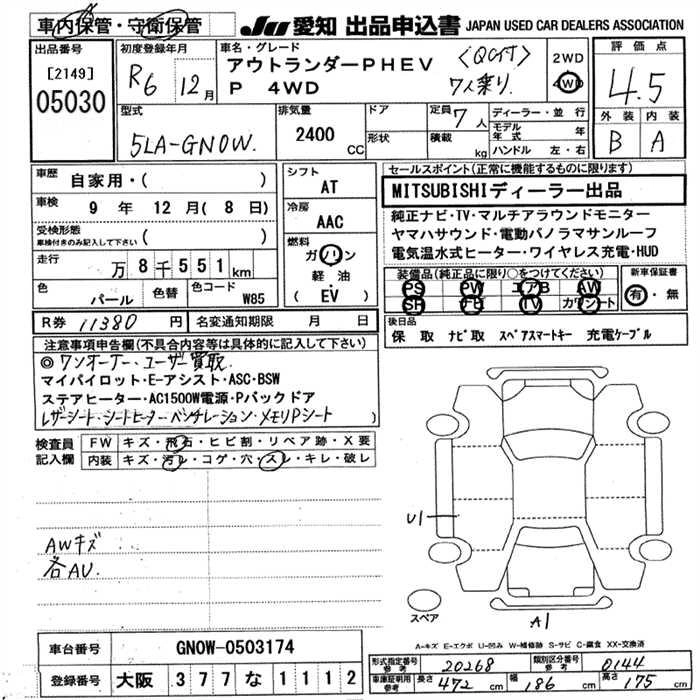 車内保管・守衛保管
JU 愛知 出品申込書 JAPAN USED CAR DEALERS ASSOCIATION
出品番号
[2149]
05030
初度登録年月
R6 12月
車名・グレード
アウトランダーPHEV
P 4WD
7人乗り.
2WD
4WD
評価点
4.5
外装 内装
B A
型式
5LA-GN0W.
排気量
2400
CC
ドア
形状
定員 7人
積載 kg
ディーラー・並行
モデル年式 年
ハンドル 左・右
車歴 自家用・( )
車検 9年 12月(8日)
受検形態
車検付きのみ記入して下さい ( )
走行 万8千551km
色 パール 色替 色コード W85
シフト
AT
冷房
AAC
燃料
ガソリン
軽油
(EV)
セールスポイント(正常に機能するものに限ります)
MITSUBISHIディーラー出品
純正ナビ・TV・マルチアラウンドモニター
ヤマハサウンド・電動パノラマサンルーフ
電気温水式ヒーター・ワイヤレス充電・HUD
装備品(純正品に限り○をつけてください)
PS PW エアB AW
SR ナビ TV カワシート
新車保証書
有・無
R券 11380 円 名変通知期限 月 日
後日品
保 取 ナビ取 スペアスマートキー 充電ケーブル
注意事項申告欄(不具合内容等は具体的に記入して下さい)
◎ワンオーナー、ユーザー買取
マイパイロット・E-アシスト・ASC・BSW
ステアヒーター・AC1500W電源・Pバックドア
レザーシート・シートヒーター・ベンチレーション・メモリPシート
検査員記入欄
FW キズ・飛石・ヒビ割・リペア跡・X要
内装 キズ・汚レ・コゲ・穴・スレ・キレ・破レ
AWキズ
各AU.
U1
スペア
A1
A-キズ E-エクボ U-凹み W-補修跡 S-サビ C-腐食 XX-交換済
車台番号 GN0W-0503174
登録番号 大阪 377 な 1112
形式指定番号 参考 20268 類別区分番号 参考 0144
車庫証明用 参考 長さ 472 cm 幅 186 cm 高さ 175 cm